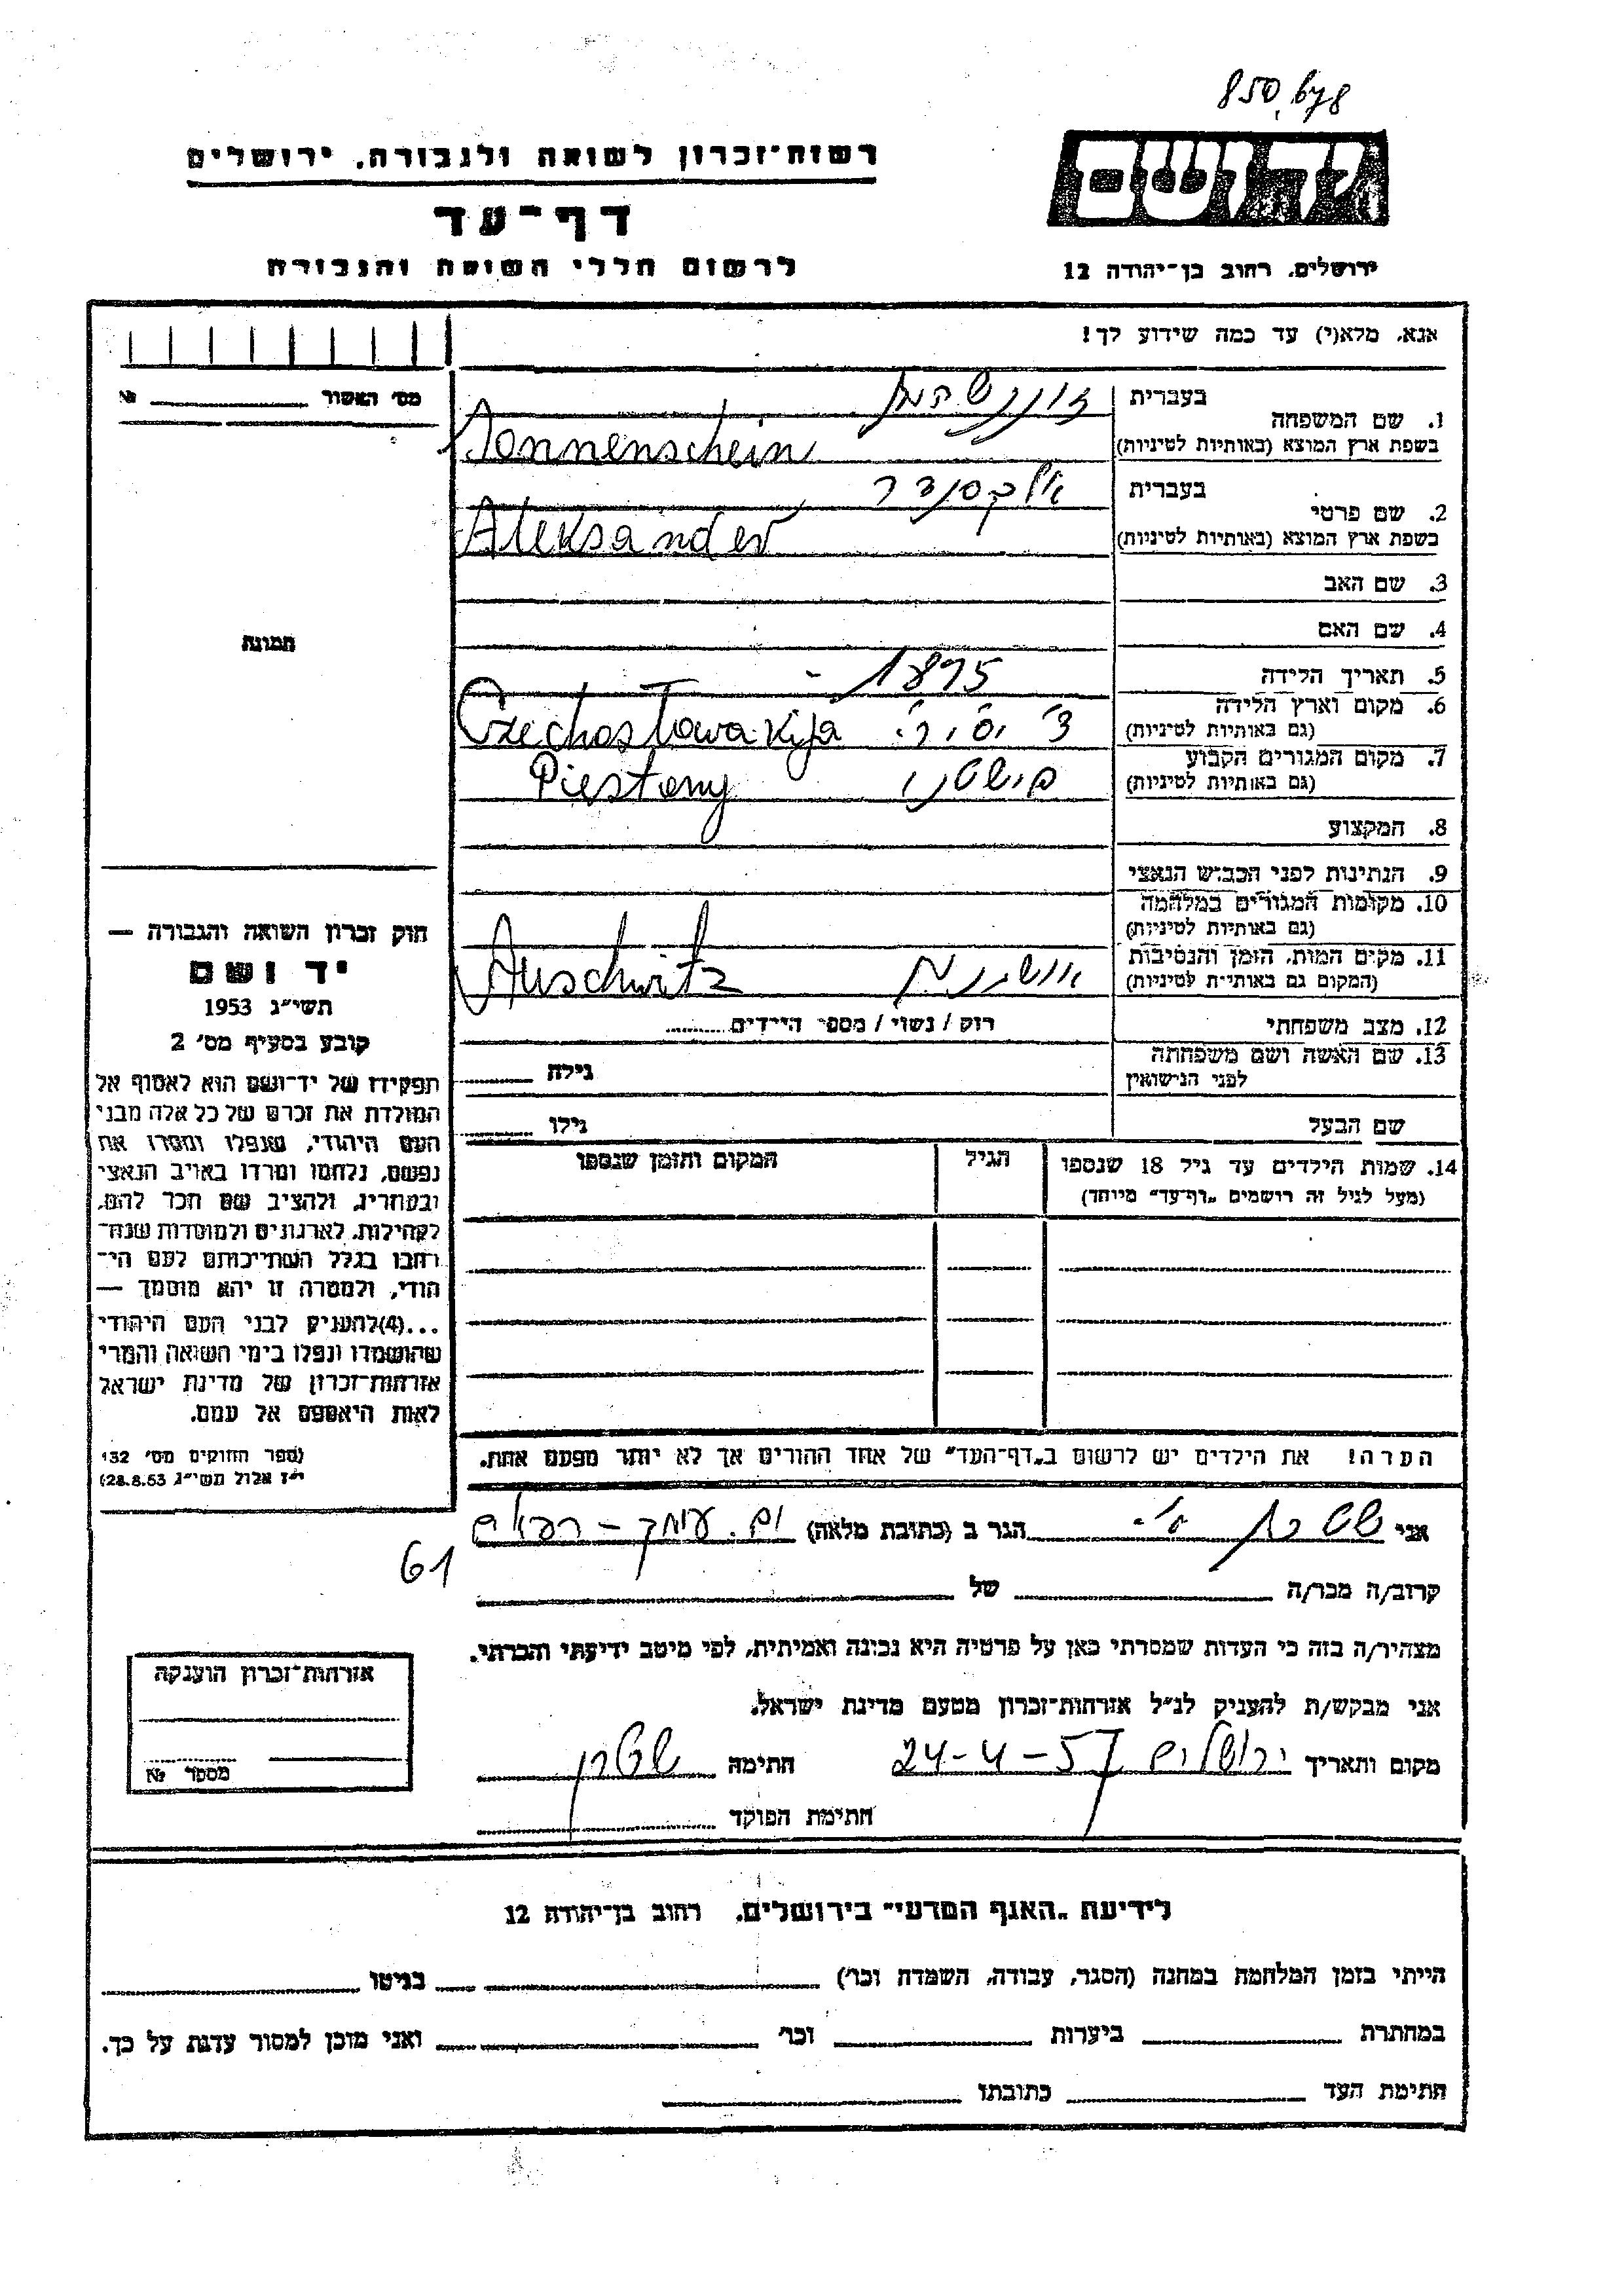 850,678
רשות־זכרון לשואה ולגבורה, ירושלים
יד ושם
דף־עד
לרשום חללי השואה והגבורה
ירושלים, רחוב בן־יהודה 12
אנא, מלא(י) עד כמה שידוע לך!
מס׳ האשור №
1. שם המשפחה
בעברית
בשפת ארץ המוצא (באותיות לטיניות) Sonnenschein
2. שם פרטי
בעברית אלכסנדר
בשפת ארץ המוצא (באותיות לטיניות) Aleksander
3. שם האב
4. שם האם
תמונה
5. תאריך הלידה 1895 -
6. מקום וארץ הלידה
(גם באותיות לטיניות) Czechostowakija
7. מקום המגורים הקבוע
(גם באותיות לטיניות) פישטני Piestany
8. המקצוע
9. הנתינות לפני הכבוש הנאצי
10. מקומות המגורים במלחמה
(גם באותיות לטיניות)
11. מקום המות, הזמן והנסיבות
(המקום גם באותיות לטיניות) אושויץ Auschwitz
12. מצב משפחתי רוק / נשוי / מספר הילדים
13. שם האשה ושם משפחתה
לפני הנישואין גילה
שם הבעל גילו
14. שמות הילדים עד גיל 18 שנספו
(מעל לגיל זה רושמים „דף־עד״ מיוחד)
הגיל
המקום והזמן שנספו
חוק זכרון השואה והגבורה —
יד ושם
תשי״ג 1953
קובע בסעיף מס׳ 2
תפקידו של יד־ושם הוא לאסוף אל
המולדת את זכרם של כל אלה מבני
העם היהודי, שנפלו ומסרו את
נפשם, נלחמו ומרדו באויב הנאצי
ובעוזריו, ולהציב שם וזכר להם,
לקהילות, לארגונים ולמוסדות שנח־
רבו בגלל השתייכותם לעם הי־
הודי, ולמטרה זו יהא מוסמך —
...(4)להעניק לבני העם היהודי
שהושמדו ונפלו בימי השואה והמרי
אזרחות־זכרון של מדינת ישראל
לאות היאספם אל עמם.
(ספר החוקים מס׳ 132
י״ז אלול תשי״ג 28.8.53)
הערה! את הילדים יש לרשום ב„דף־העד״ של אחד ההורים אך לא יותר מפעם אחת.
אני הגר ב (כתובת מלאה)
61
קרוב/ה מכר/ה של
מצהיר/ה בזה כי העדות שמסרתי כאן על פרטיה היא נכונה ואמיתית, לפי מיטב ידיעתי והכרתי.
אני מבקש/ת להעניק לנ״ל אזרחות־זכרון מטעם מדינת ישראל.
מקום ותאריך ירושלים 24-4-57 חתימה
חתימת הפוקד
אזרחות־זכרון הוענקה
מספר №
לידיעת „האגף המדעי״ בירושלים, רחוב בן־יהודה 12
הייתי בזמן המלחמה במחנה (הסגר, עבודה, השמדה וכו׳) בגיטו
במחתרת ביערות וכו׳ ואני מוכן למסור עדות על כך.
חתימת העד כתובתו